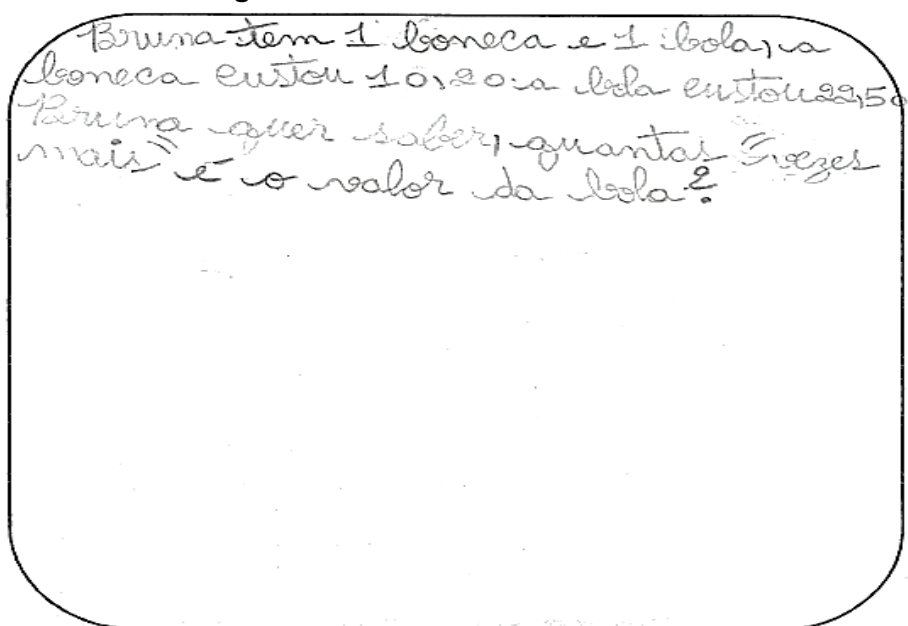 Bruna tem 1 boneca e 1 bola, a
boneca custou 10,20 a bola custou 22,50
Bruna quer saber, quantas "vezes
mais" é o valor da bola?